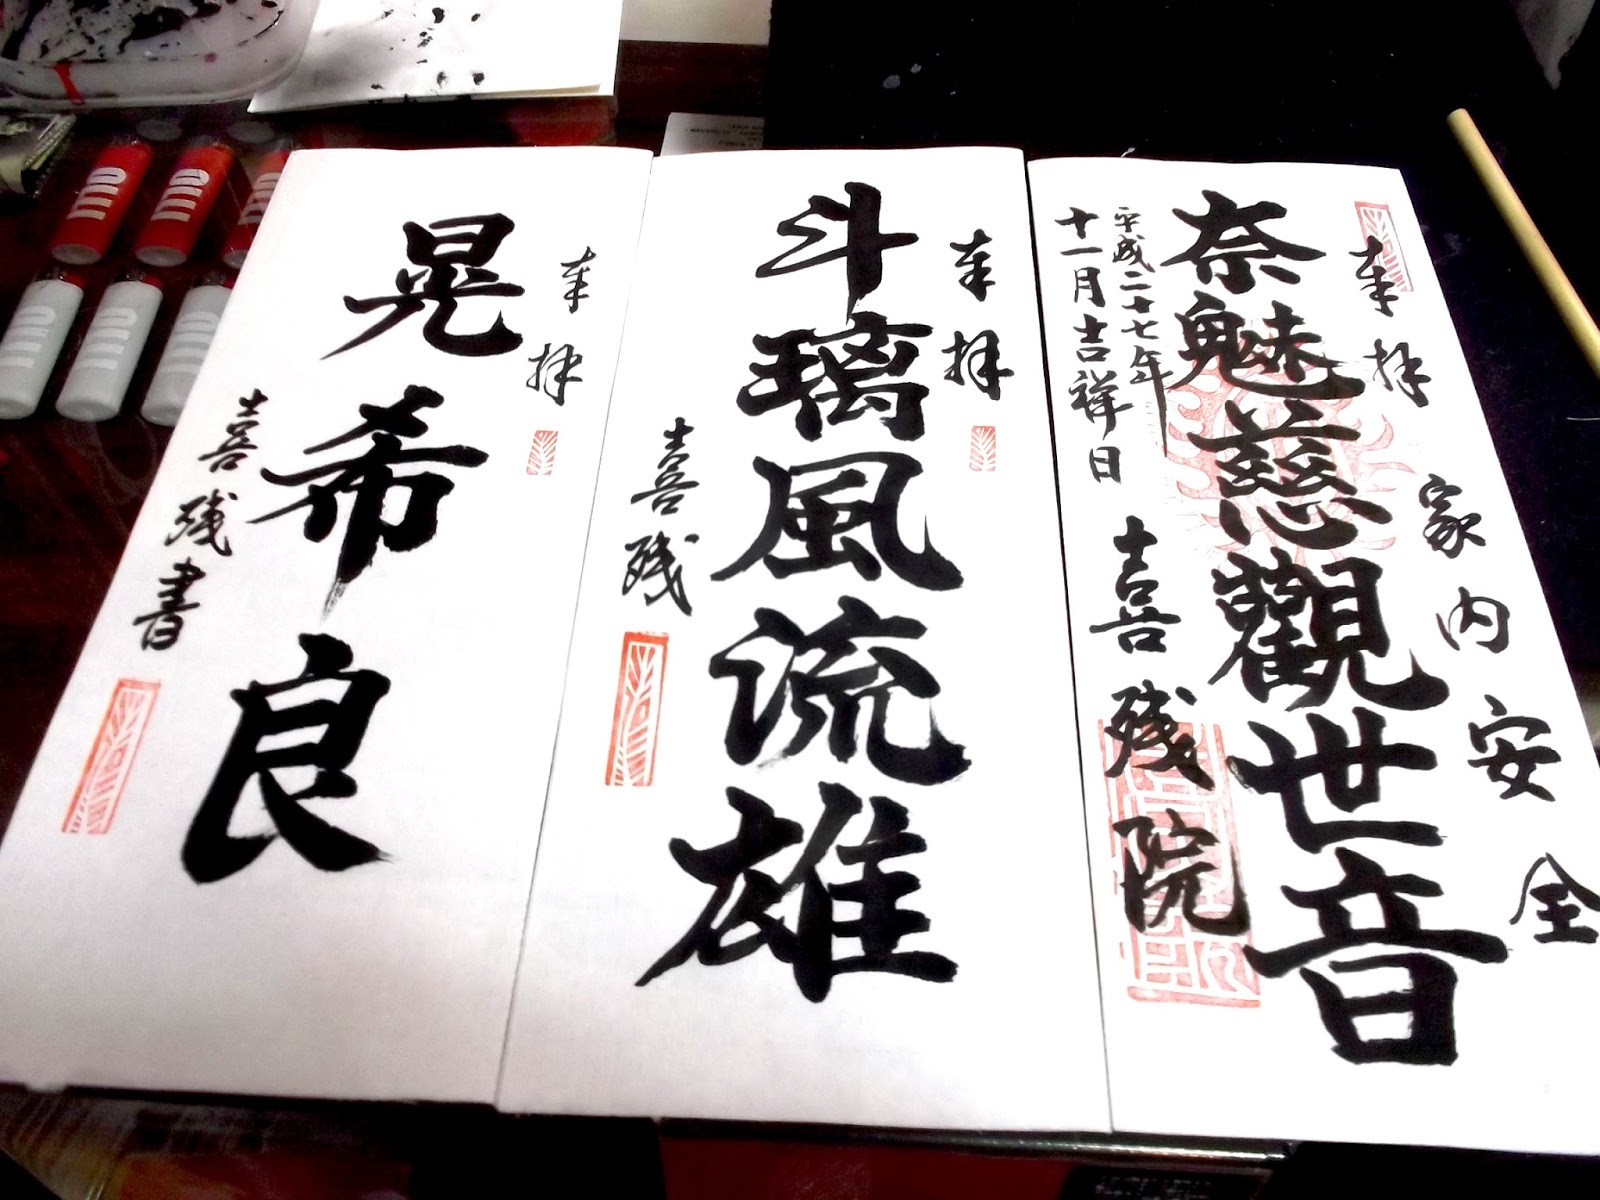 家内安全
奉拝
奈魅慈觀世音
平成二十七年
十一月吉祥日
喜残院
奉拝
斗璃風流雄
喜残
奉拝
晃希良
喜残書